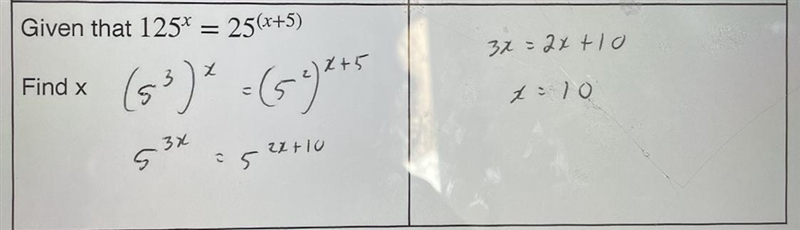 Given that 125ˣ = 25⁽ˣ⁺⁵⁾
Find x
(5³)ˣ = (5²)ˣ⁺⁵
5³ˣ = 5²ˣ⁺¹⁰
3x = 2x + 10
x = 10